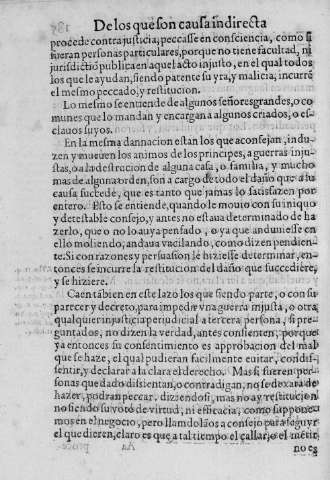 De los que son causa indirecta
procede contra justicia, peccasse en consciencia, como si
fueran personas particulares, porque no tiene facultad, ni
jurisdictiõ publica en aquel acto injusto, en el qual todos
los que le ayudan, siendo patente su yra, y malicia, incurrẽ
el mesmo peccado, y restitucion.
Lo mesmo se entiende de algunos señores grandes, o co
munes que lo mandan y encargan a algunos criados, o es-
clauos suyos.
En la mesma dannacion estan los que aconsejan, indu-
zen y mueuen los animos de los principes, a guerras inju-
stas, o a la destrucion de alguna casa, o familia, y mucho
mas de alguna orden, son a cargo de todo el daño que a su
causa succede, que es tanto que jamas lo satisfazen por
entero. Esto se entiende, quando le mouio con su iniquo
y detestable consejo, y antes no estaua determinado de ha
zerlo, que o no lo auya pensado, o ya que anduuiesse en
ello moliendo, andaua vacilando, como dizen pendien-
te. Si con razones y persuasion le hiziesse determinar, en-
tonces se incurre la restitucion del daño que succediere,
y se hiziere.
Caen tãbien en este lazo los que siendo parte, o con su
parecer y decreto, para impedir vna guerra injusta, o otra
qualquier injusticia perjudicial a tercera persona, si pre-
guntados, no dizen la verdad, antes consienten, porque
ya entonces su consentimiento es approbacion del mal
que se haze, el qual pudieran facilmente euitar, cõ
sentir, y declarar a la clara el derecho. Mas si fueren per-
sonas que dado dissientan, o contradigan, no se dexara de
hazer, podran peccar, diziendo si, mas no ay restituciõ
no siendo su voto de virtud, ni efficacia, como suppone-
mos en el negocio, pero llamãdolos a consejo para seguyr
el que dieren, claro es que a tal tiempo el callar, o el
no es
Aa